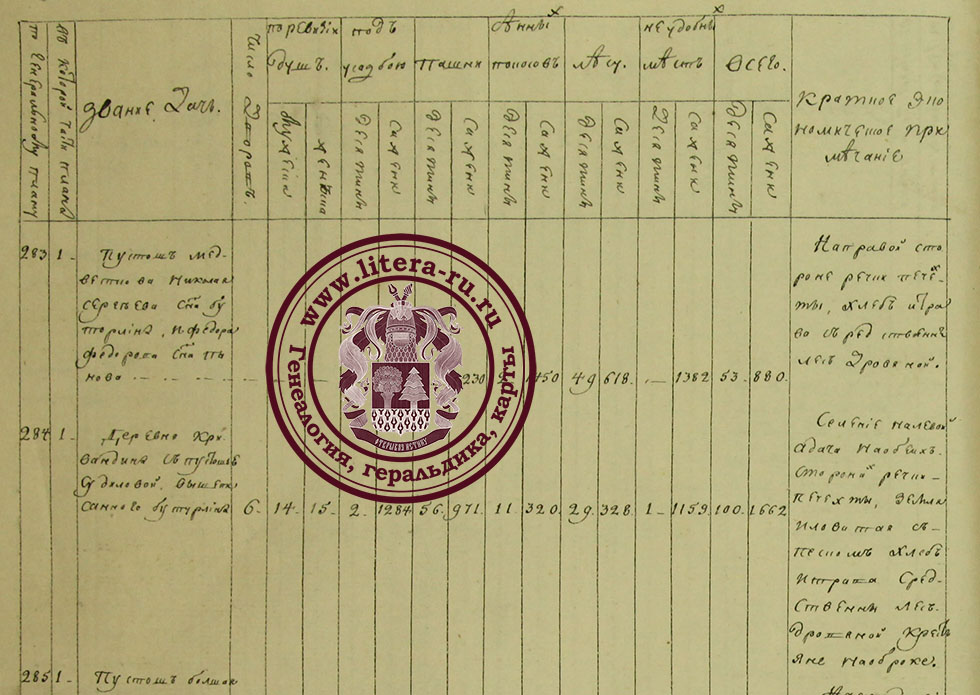 по генеральному плану
въ которой части плана
званiе дачь.
число дворовъ.
по ревизiи
душъ.
мужеска
женска
подъ
усадбою
десятины
сажени
пашни
десятины
сажени
сенныхъ
покосовъ
десятины
сажени
лѣсу.
десятины
сажени
неудобных
мѣстъ
десятины
сажени
всего.
десятины
сажени
краткое эко
номическое при
мѣчанiе
283 1 -
Пустошъ мед-
сергеева сна бу
турлина, и федора
федорова сна
нова
230
1450 49 618. - 1382 53. 880.
На правой сто
роне речки пече
ты, хлебъ и тра
ва средственны
лесъ дровеной.
284 1 -
Деревня Кри
вандина съ пустошью
Судиловой, вышепи
санного бутурлина 6. 14. 15. 2. 1284 56. 971. 11 320. 29. 328. 1 - 1159. 100. 1662
Селение на левой
а дача на обеихъ
сторонахъ речки
печехты, земля
иловатая съ
пескомъ хлебъ
и трава сред-
ственны лесъ
дровяной кресть
яне на оброке.
285 1 -
Пустошъ болшая
www.litera-ru.ru
Генеалогия, геральдика, карты